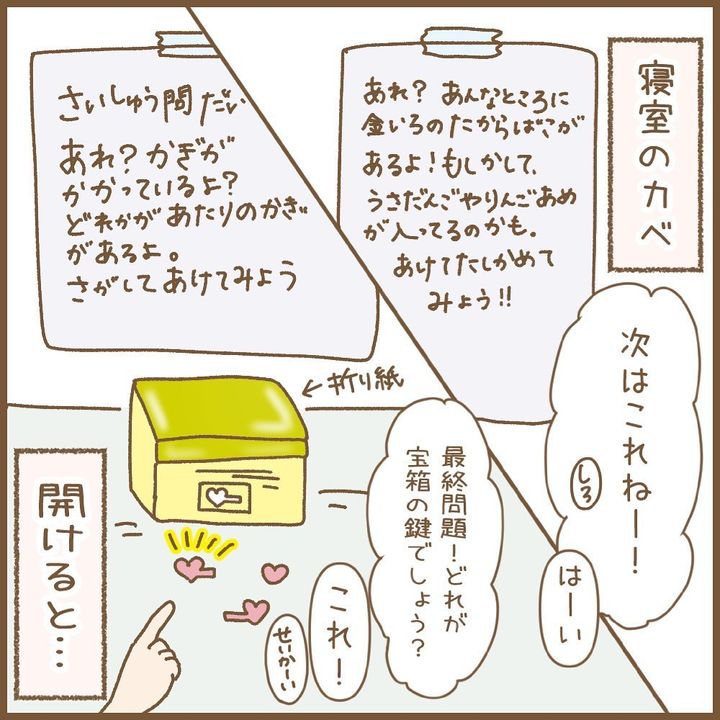 寝室のカベ
あれ？あんなところに
金いろのたからばこが
あるよ！もしかして、
うさだんごやりんごあめ
が入ってるのかも。
あけてたしかめて
みよう!!
次はこれねー！
はーい
さいしゅう問だい
あれ？かぎが
かかっているよ？
どれかがあたりのかぎ
があるよ。
さがしてあけてみよう
←折り紙
最終問題！どれが
宝箱の鍵でしょう？
これ！
せいかーい
開けると…